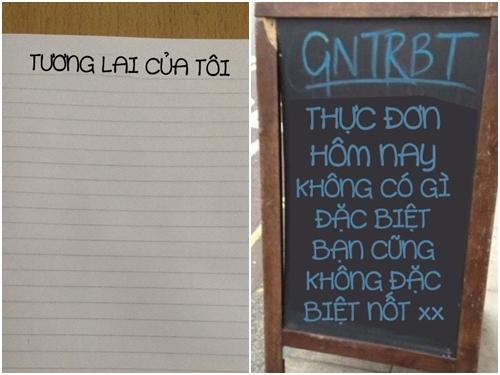 TƯƠNG LAI CỦA TÔI
GNTRBT
THỰC ĐƠN
HÔM NAY
KHÔNG CÓ GÌ
ĐẶC BIỆT
BẠN CŨNG
KHÔNG ĐẶC
BIỆT NỐT xx